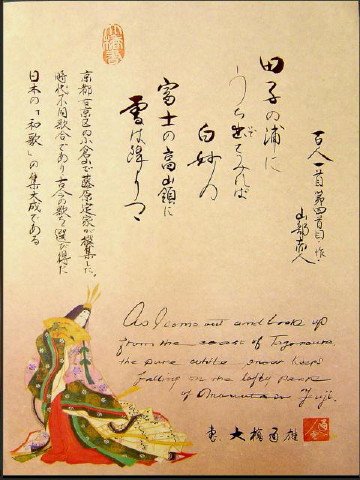 百人一首第四首目・作
山部赤人
田子の浦に
うち出でてみれば
白妙の
富士の高嶺に
雪は降りつつ
京都右京区の小倉山で藤原定家が撰集した。
時代不同歌合であり百人の歌を選び得た
日本の「和歌」の集大成である
As I come out and look up
from the coast of Tagonoura
the pure white snow keeps
falling on the lofty peak
of Mountain Fuji.
大橋 雄